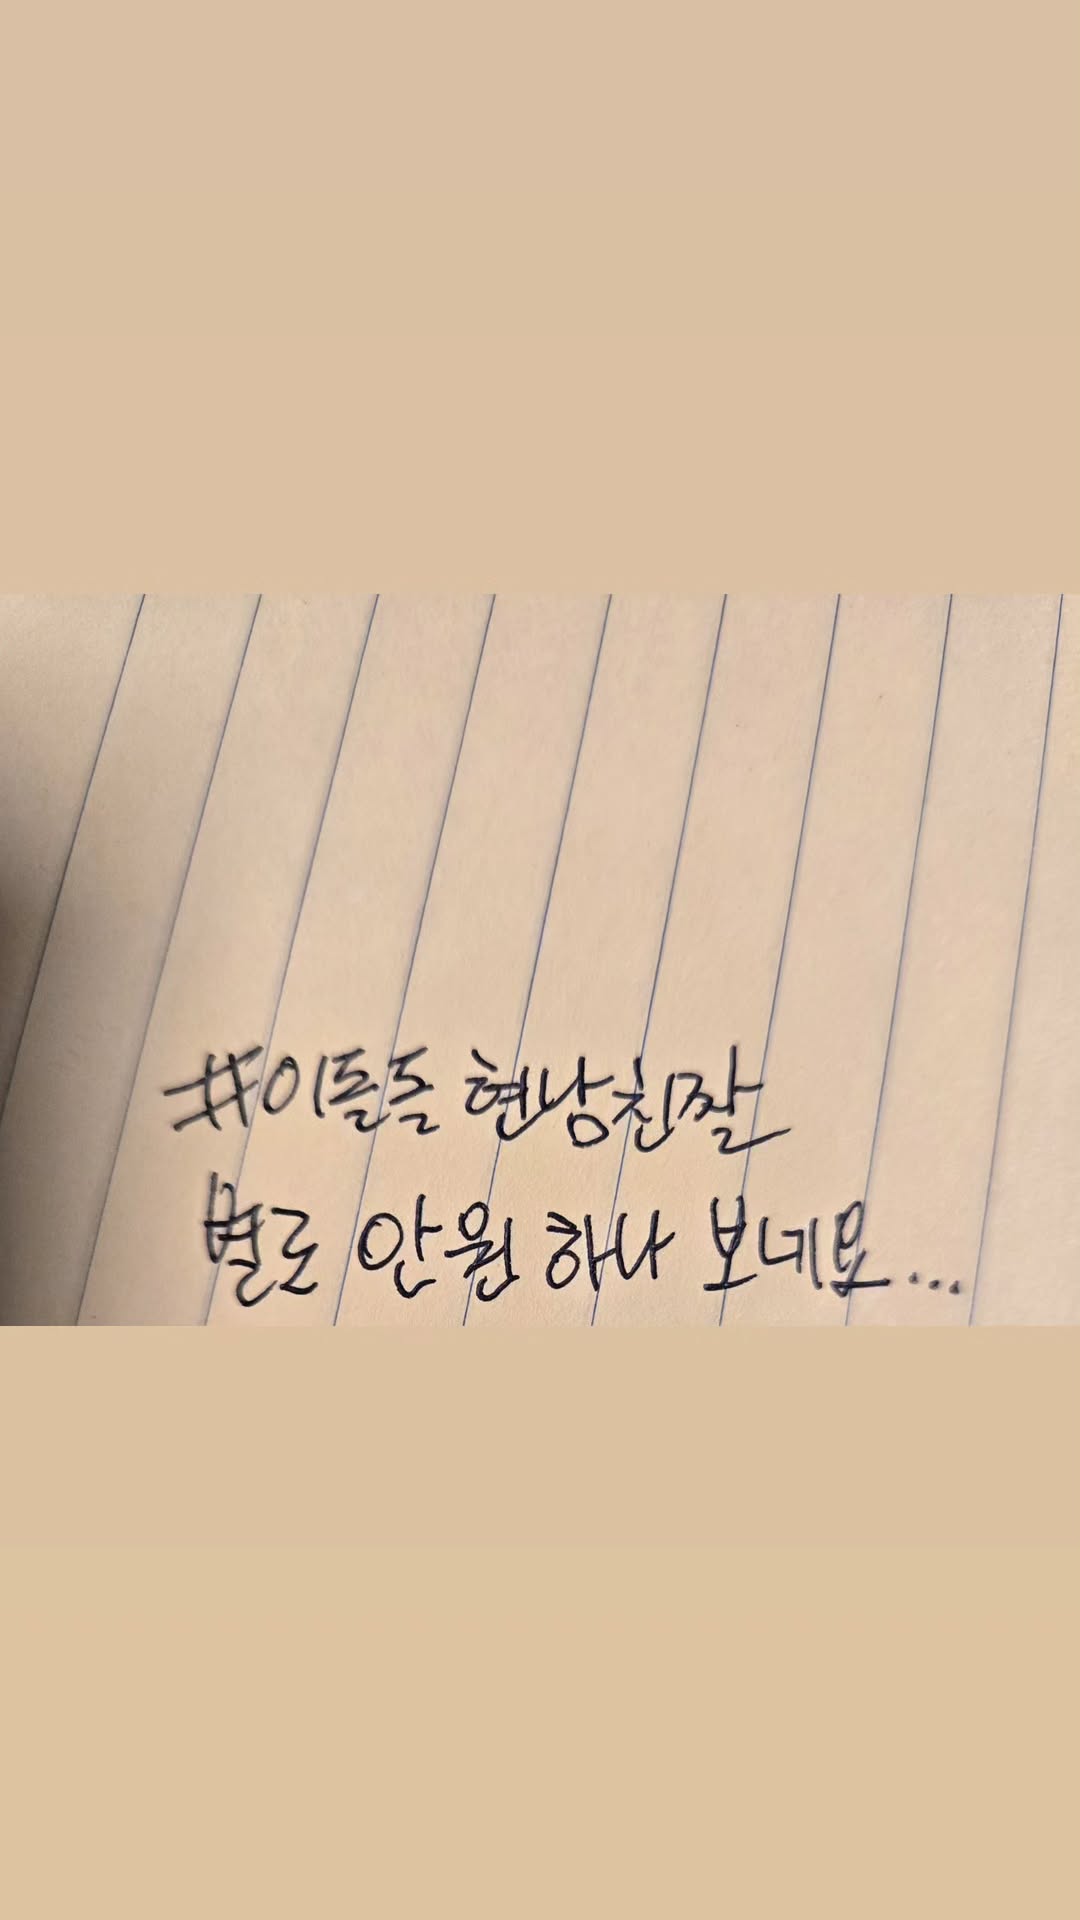 #이돌돌 현남친짤
별로 안원하나 보네요...